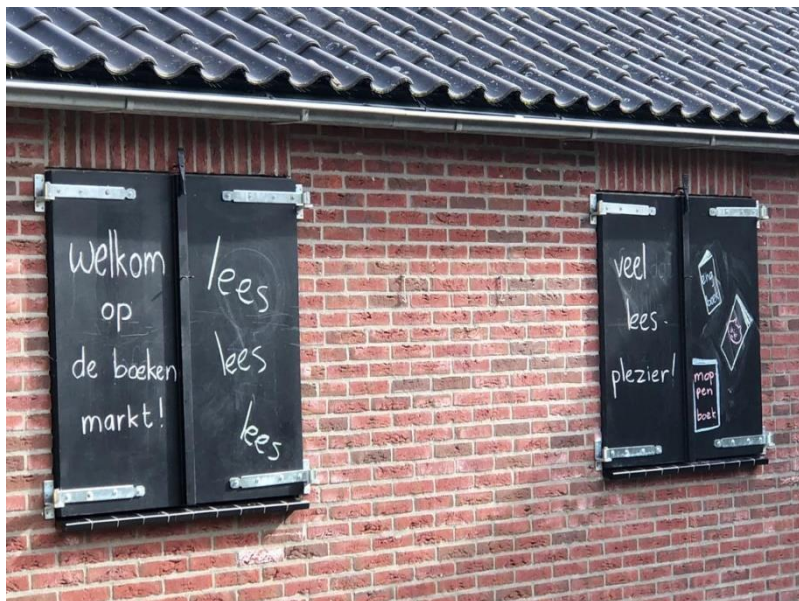 welkom
op
de boeken
markt!
lees
lees
lees
veel
lees-
plezier!
eng
boek
mop
pen
boek